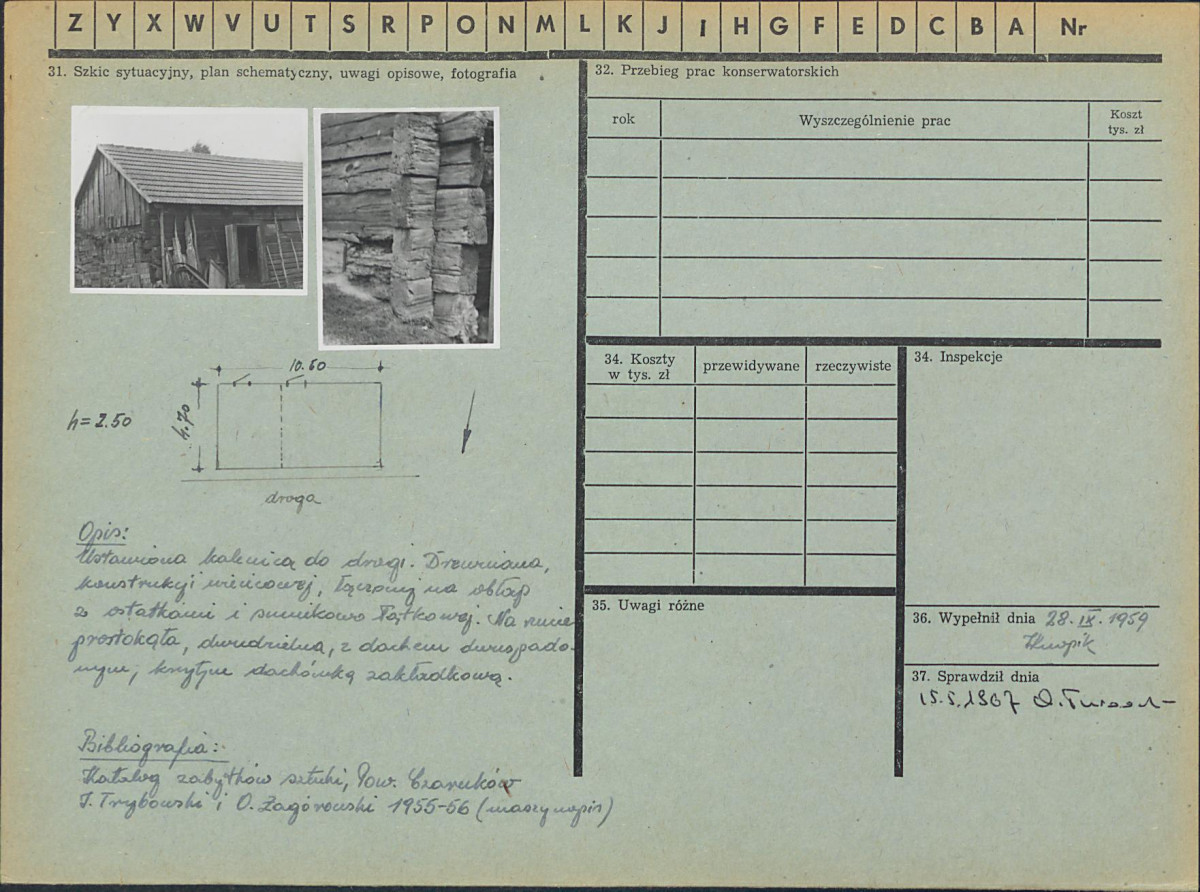 Z Y X W V U T S R P O N M L K J I H G F E D C B A Nr
31. Szkic sytuacyjny, plan schematyczny, uwagi opisowe, fotografia
10.60
4.70
h=2.50
droga
Opis:
Ustawiona kalenicą do drogi. Drewniana,
konstrukcji wieńcowej, łączonej na obłap
z ostatkami i sumikowo łątkowej. Na rzucie
prostokąta, dwudzielna, z dachem dwuspado-
wym, krytym dachówką zakładkową.
Bibliografia:
Katalog zabytków sztuki, Pow. Czarnków
J. Trybowski i O. Zagórowski 1955-56 (maszynopis)
32. Przebieg prac konserwatorskich
rok
Wyszczególnienie prac
Koszt
tys. zł
34. Koszty
w tys. zł
przewidywane
rzeczywiste
34. Inspekcje
35. Uwagi różne
36. Wypełnił dnia 28.IX.1959
37. Sprawdził dnia
15.5.1967